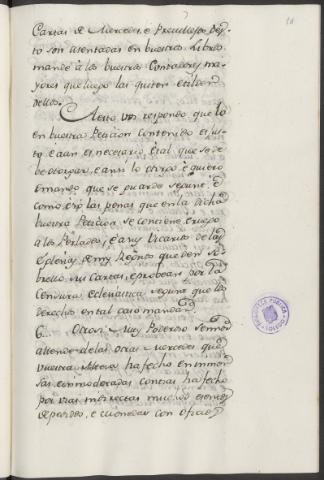 Cartas de Mercedes, e Previllejos de s
to son asentadas en vuestros Libros
mande à los vuestros Contadores ma-
yores que luego las quiten è tilden
dellos.
A esto vos respondo que lo
en vuestra Peticion contenido es jus-
to, e aun es necesario, è tal que se de
be otorgar, e ansi lo otorgo è quiero
è mando que se guarde segunt, è
como, è so las penas que en la dicha
vuestra Peticion se contiene, è ruego
a los Perlados, è a los Vicarios de las
Eglesias de mis Regnos que den so-
brello sus cartas, e procedan por la
Censura Eclesiastica segunt que los
derechos en tal caso mandan.
6... Otrosi Muy Poderoso Señor
allende de las otras Mercedes que
vuestra Alteza ha fecho en inmen-
sas è inmoderadas contias ha fecho
por vias indirectas mucho
de pedidos, e monedas con oficios
BIBLIOTECA PUBLICA
TOLEDO